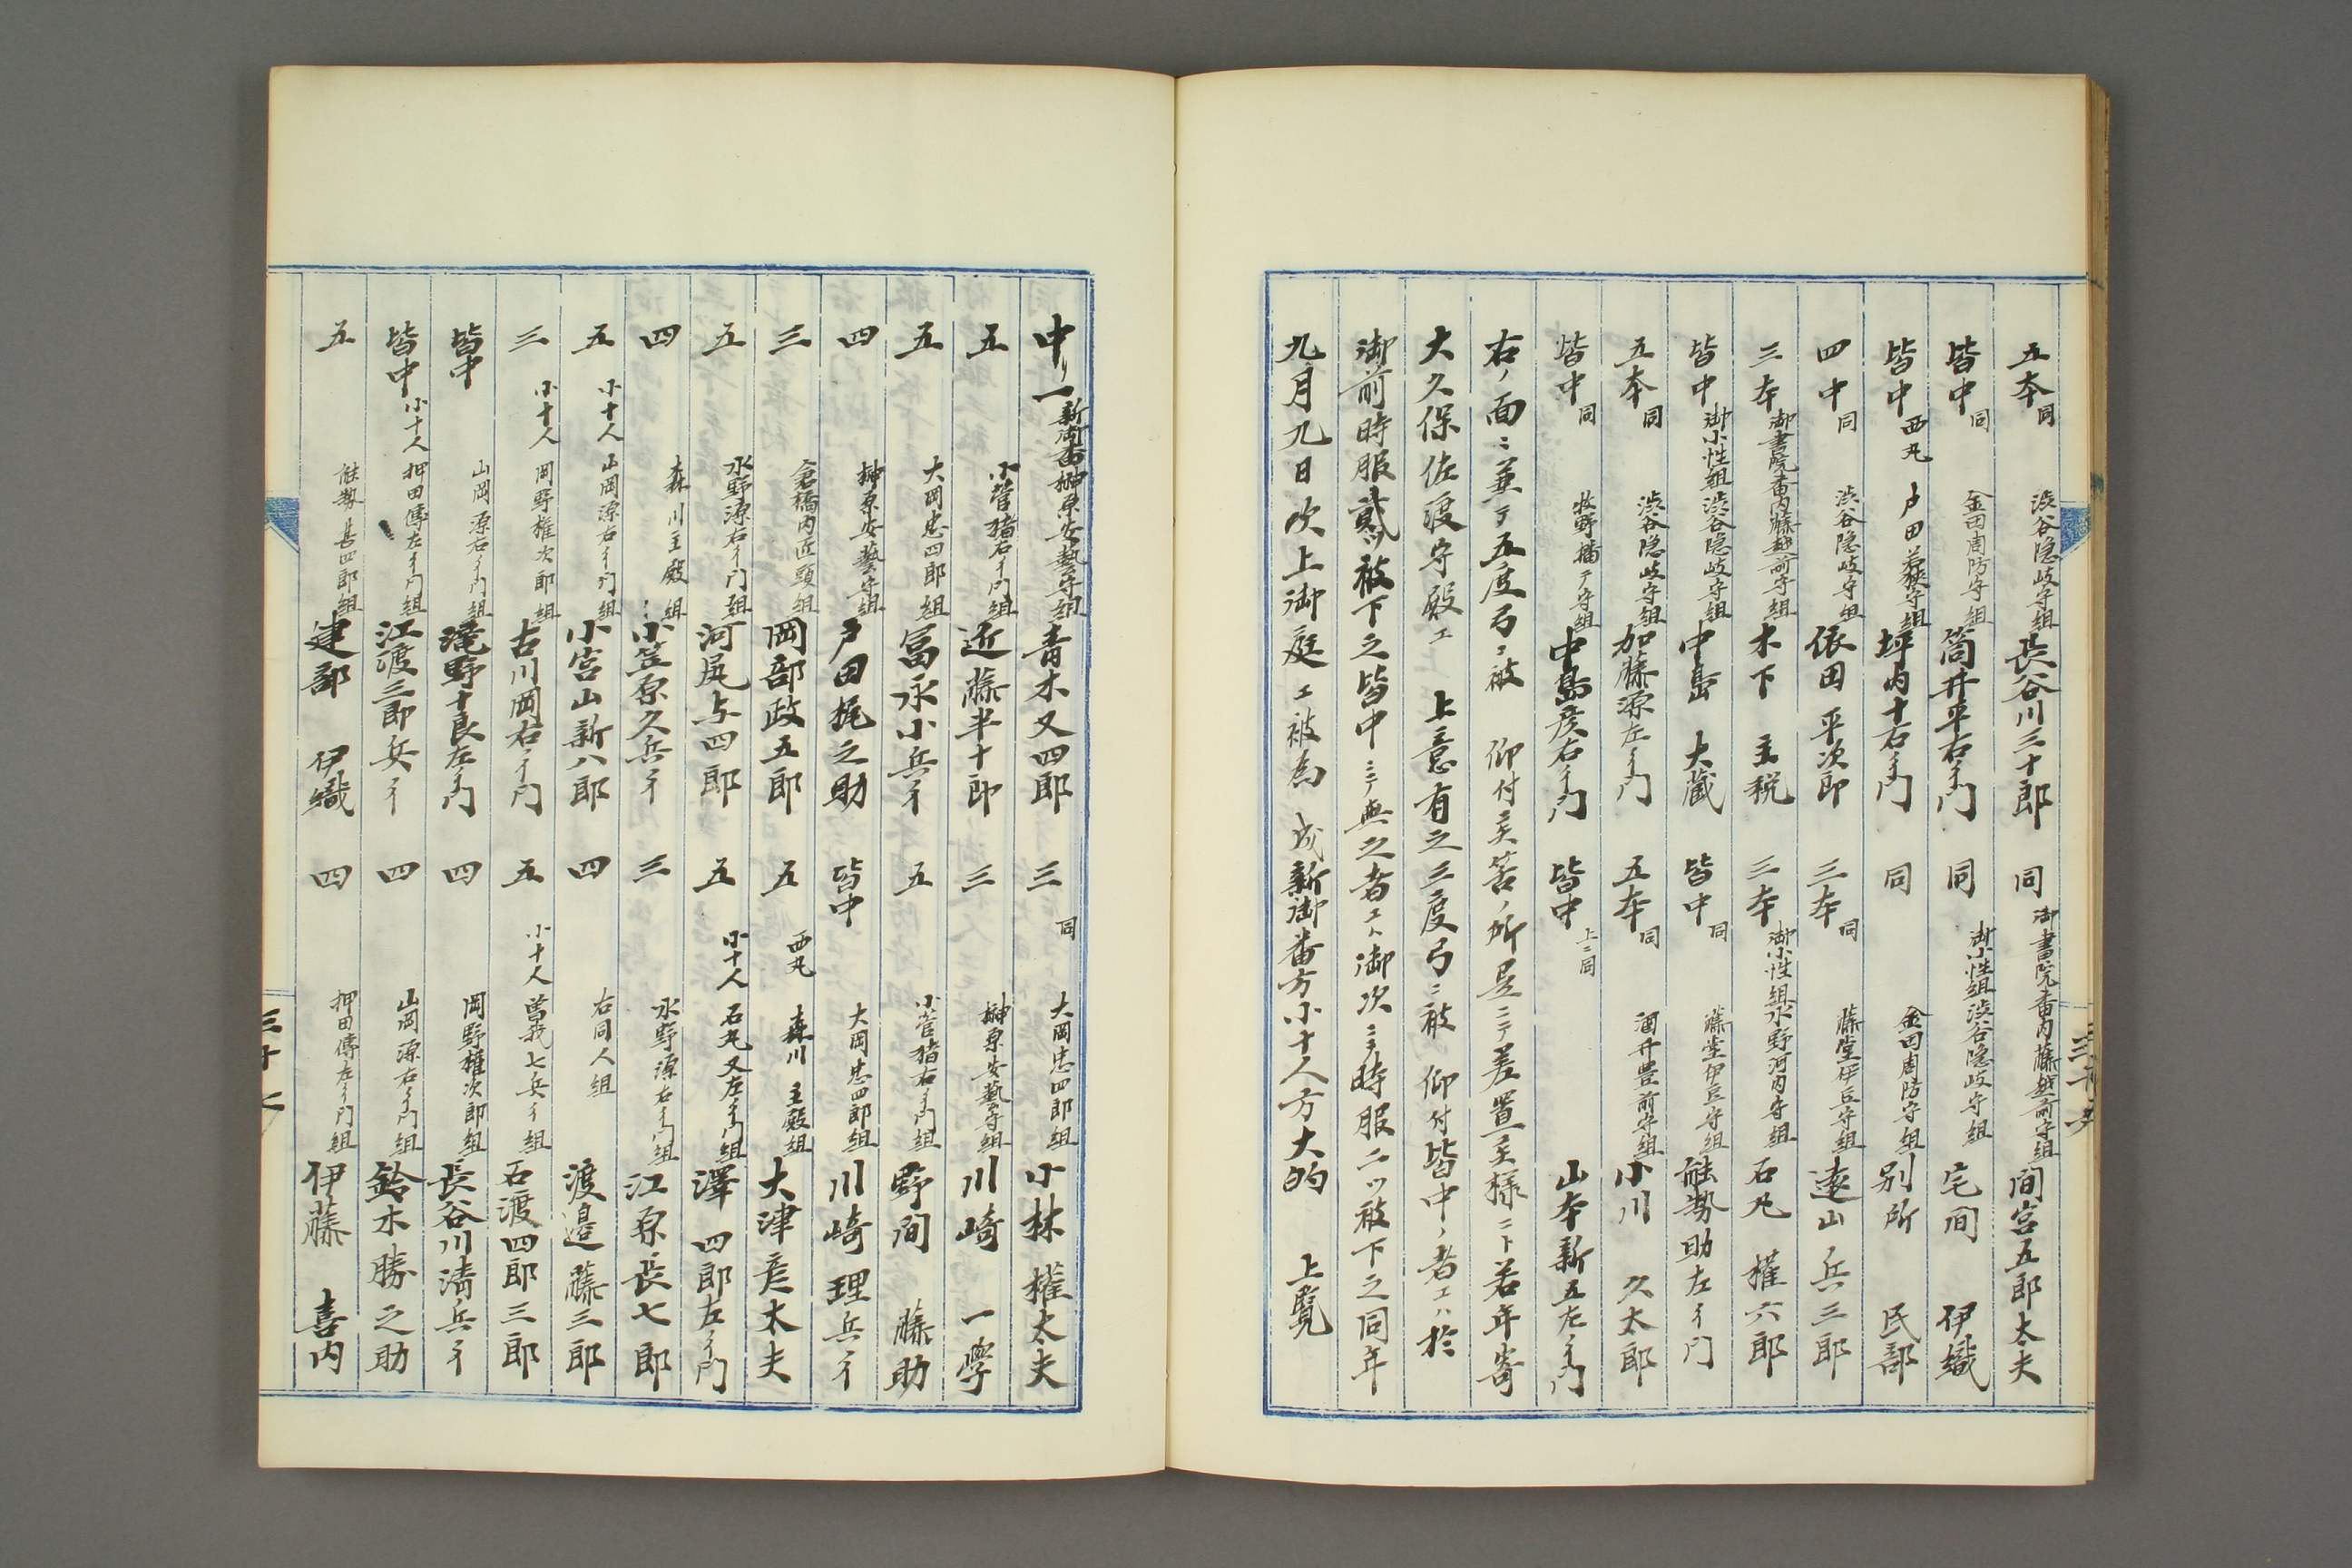 五本同 渋谷隠岐守組 長谷川三十郎 同 御書院番内藤越前守組 間宮五郎太夫
皆中同 金田周防守組 筒井平右衛門 同 御小性組渋谷隠岐守組 宅間 伊織
皆中西丸 戸田若狭守組 坪内十右衛門 同 金田周防守組 別所 民部
四中同 渋谷隠岐守組 依田平次郎 三本同 藤堂伊豆守組 遠山兵三郎
三本御書院番内藤越前守組 木下 主税 三本御小性組水野河内守組 石丸 権六郎
皆中御小性組渋谷隠岐守組 中島 大蔵 皆中同 藤堂伊豆守組 能勢助左衛門
五本同 渋谷隠岐守組 加藤源左衛門 五本同 酒井豊前守組 小川 久太郎
皆中同 牧野播广守組 中島彦右衛門 皆中上ニ同 山本新五左衛門
右ノ面ニ並テ五度弓ニ被 仰付候筈ノ所是ニテ差置候様ニト若年寄
大久保佐渡守殿エ 上意有之三度弓ニ被 仰付皆中ノ者エハ於
御前時服貳被下之皆中ニテ無之者エハ御次ニテ時服二ツ被下之同年
九月九日吹上御庭エ被為 成新御番方小十人方大的 上覧
中リ一 新御番榊原安藝守組 青木又四郎 三 同 大岡忠四郎組 小林 權太夫
五 小菅猪右衛門組 近藤半十郎 三 榊原安藝守組 川崎 一學
五 大岡忠四郎組 冨永小兵衛 五 小菅猪右衛門組 野間 藤助
四 榊原安藝守組 戸田梶之助 皆中 大岡忠四郎組 川崎 理兵衛
三 倉橋内匠頭組 岡部政五郎 五 西丸 森川 主殿組 大津彦太夫
五 水野源右衛門組 河尻与四郎 五 小十人 石丸又左衛門組 澤 四郎左衛門
四 森川主殿組 小笠原久兵衛 三 水野源右衛門組 江原長七郎
五 小十人 山岡源右衛門組 小宮山新八郎 四 右同人組 渡邉藤三郎
三 小十人 岡野権次郎組 古川岡右衛門 五 小十人 曽我七兵衛組 石渡四郎三郎
皆中 山岡源右衛門組 滝野十良左衛門 四 岡野権次郎組 長谷川清兵衛
皆中小十人 押田傳左衛門組 江渡三郎兵衛 四 山岡源右衛門組 鈴木勝之助
五 能勢甚四郎組 建部 伊織 四 押田傳左衛門組 伊藤 喜内
三十七